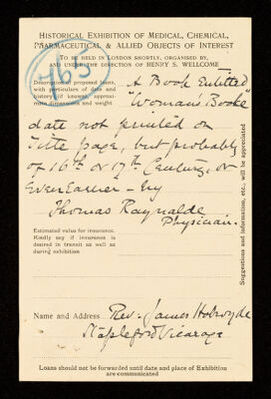 HISTORICAL EXHIBITION OF MEDICAL, CHEMICAL,
PHARMACEUTICAL & ALLIED OBJECTS OF INTEREST
TO BE HELD IN LONDON SHORTLY, ORGANISED BY,
AND UNDER THE DIRECTION OF HENRY S. WELLCOME
765
Description of proposed loans,
with particulars of date and
history if known; approxi-
mate dimensions and weight
A Book Entitled
"Woman's Booke"
date not printed on
Title page, but probably
of 16th or 17th Century, or
Even Earlier - by
Thomas Raynalde
Physician.
Estimated value for insurance.
Kindly say if insurance is
desired in transit as well as
during exhibition
Suggestions and information, etc., will be appreciated
Name and Address
Rev. James Holroyde
Stapleford Vicarage
Loans should not be forwarded until date and place of Exhibition
are communicated